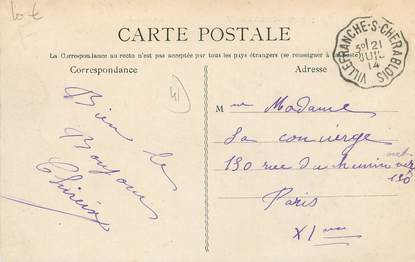 CARTE POSTALE
La Correspondance au recto n'est pas acceptée par tous les pays étrangers (se renseigner à la
Correspondance
Adresse
VILLEFRANCHE-S-CHER A BLOIS
21
JUIL
14
41
Bien le
Bonjour
M me Madame
La concierge
130 rue du chemin vert
130
Paris
XI me